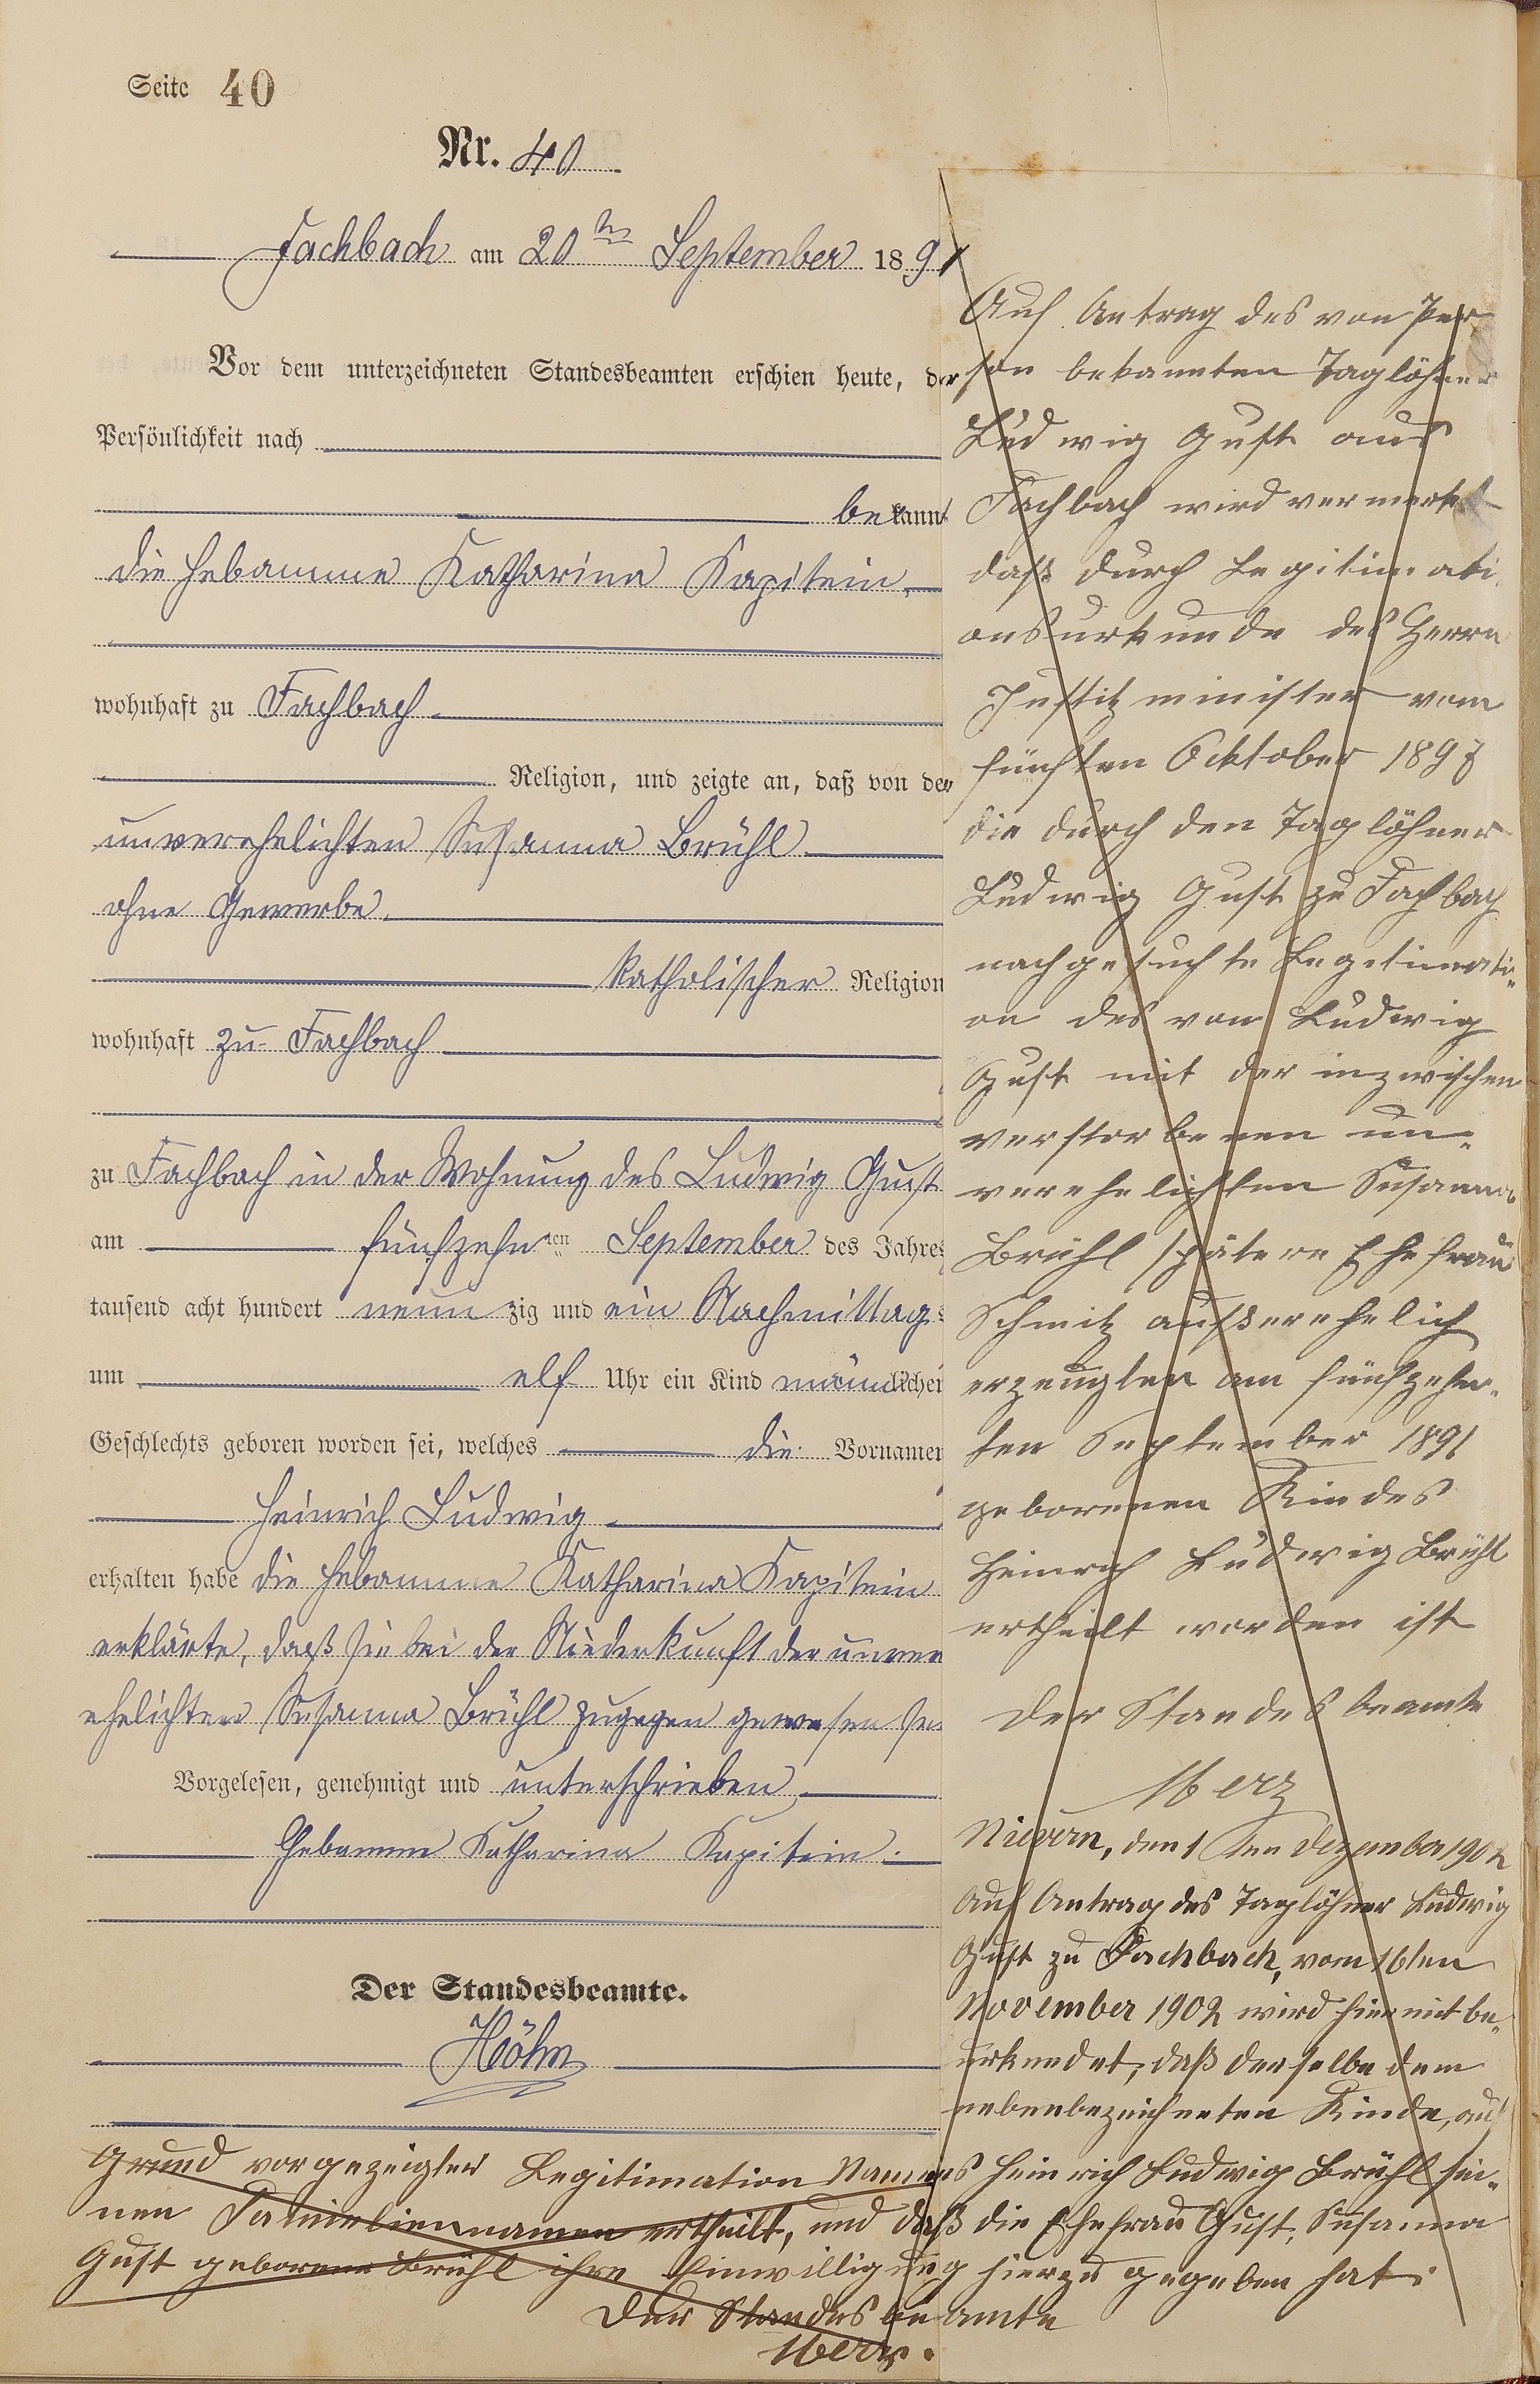 Seite 40
Nr. 40
Fachbach am 20ten September 1891
Vor dem unterzeichneten Standesbeamten erschien heute, der
Persönlichkeit nach
bekannt
die Hebamme Katharina Kapitein,
wohnhaft zu Fachbach
Religion, und zeigte an, daß von der
unverehelichten Susanna Brühl
ohne Gewerbe,
katholischer Religion
wohnhaft zu Fachbach
zu Fachbach in der Wohnung des Ludwig Gust
am fünfzehnten September des Jahres
tausend acht hundert neunzig und ein Nachmittags
um elf Uhr ein Kind männlichen
Geschlechts geboren worden sei, welches die Vornamen
Heinrich Ludwig
erhalten habe die Hebamme Katharina Kapitein
erklärte, daß sie bei der Niederkunft der unver
ehelichten Susanna Brühl zugegen gewesen sei
Vorgelesen, genehmigt und unterschrieben
Hebamme Katharina Kapitein.
Der Standesbeamte.
Höhn
Auf Antrag des von Per
son bekannten Taglöhner
Ludwig Gust aus
Fachbach wird vermerkt
daß durch Legitimati
onsurkunde des Herrn
Justizminister vom
fünften Ocktober 1897
die durch den Taglöhner
Ludwig Gust zu Fachbach
nachgesuchte Legetimati-
on des von Ludwig
Gust mit der inzwischen
verstorbenen un-
verehelichten Susanna
Brühl spätere Ehefrau
Schmitz außerehelich
erzeugten am fünfzehn-
ten September 1891
geborenen Kindes
Heinrich Ludwig Brühl
ertheilt worden ist
Der Standesbeamte
Merz
Nievern, den 1ten Dezember 1902
Auf Antrag des Taglöhner Ludwig
Gust zu Fachbach, vom 16ten
November 1902 wird hiermit be-
urkundet, daß derselbe dem
nebenbezeichneten Kinde, auf
Grund vorgezeigter Legitimation Namens Heinrich Ludwig Brühl sei-
nen Familiennamen ertheilt, und daß die Ehefrau Gust, Susanna
Gust geborene Brühl ihre Einwilligung hierzu gegeben hat.
Der Standesbeamte
Merz.